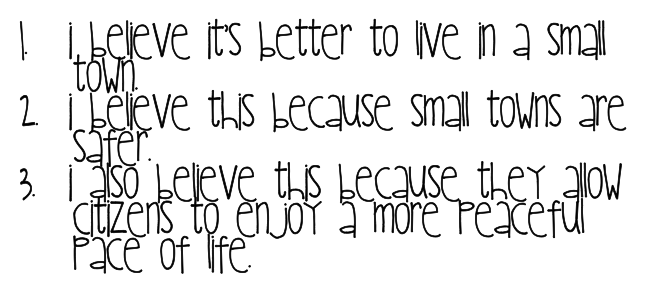 1. i believe it's better to live in a small
town.
2. i believe this because small towns are
safer.
3. i also believe this because they allow
citizens to enjoy a more peaceful
pace of life.